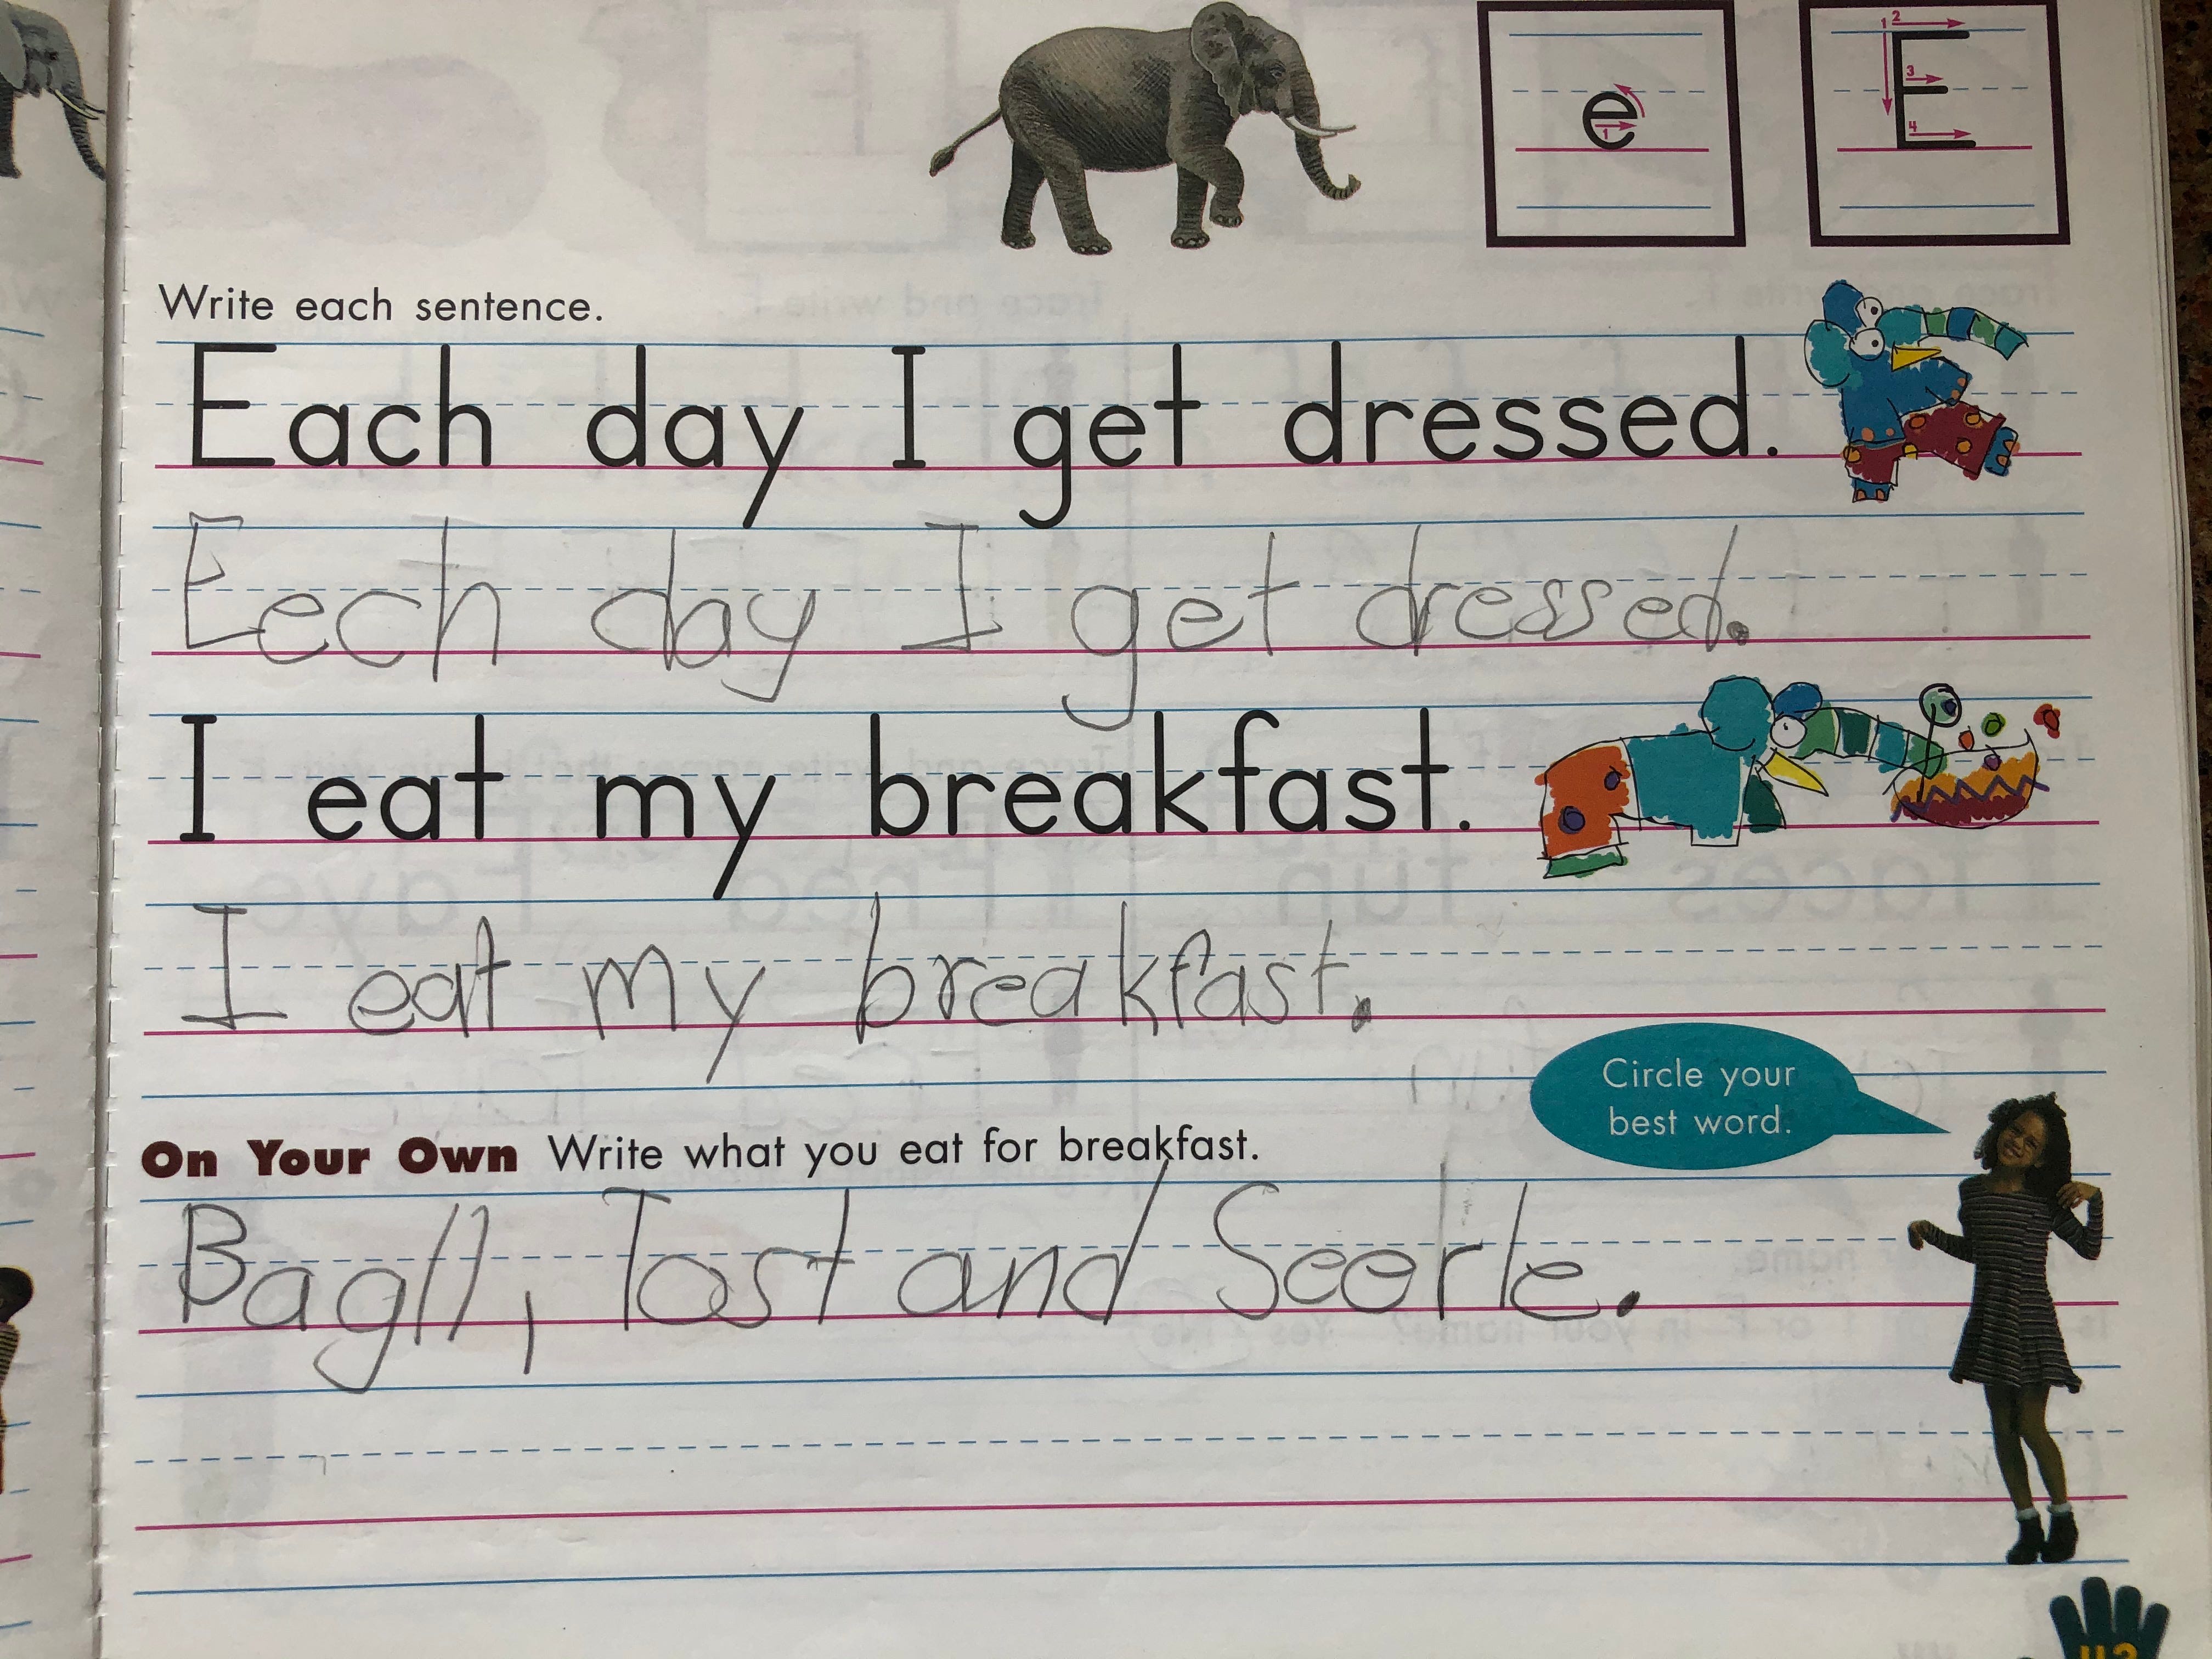 e E
1 1 2 3 4
Write each sentence.
Each day I get dressed.
Eech day I get dressed.
I eat my breakfast.
I eat my breakfast.
Circle your
best word.
On Your Own Write what you eat for breakfast.
Bagll, Tost and Sceorle.